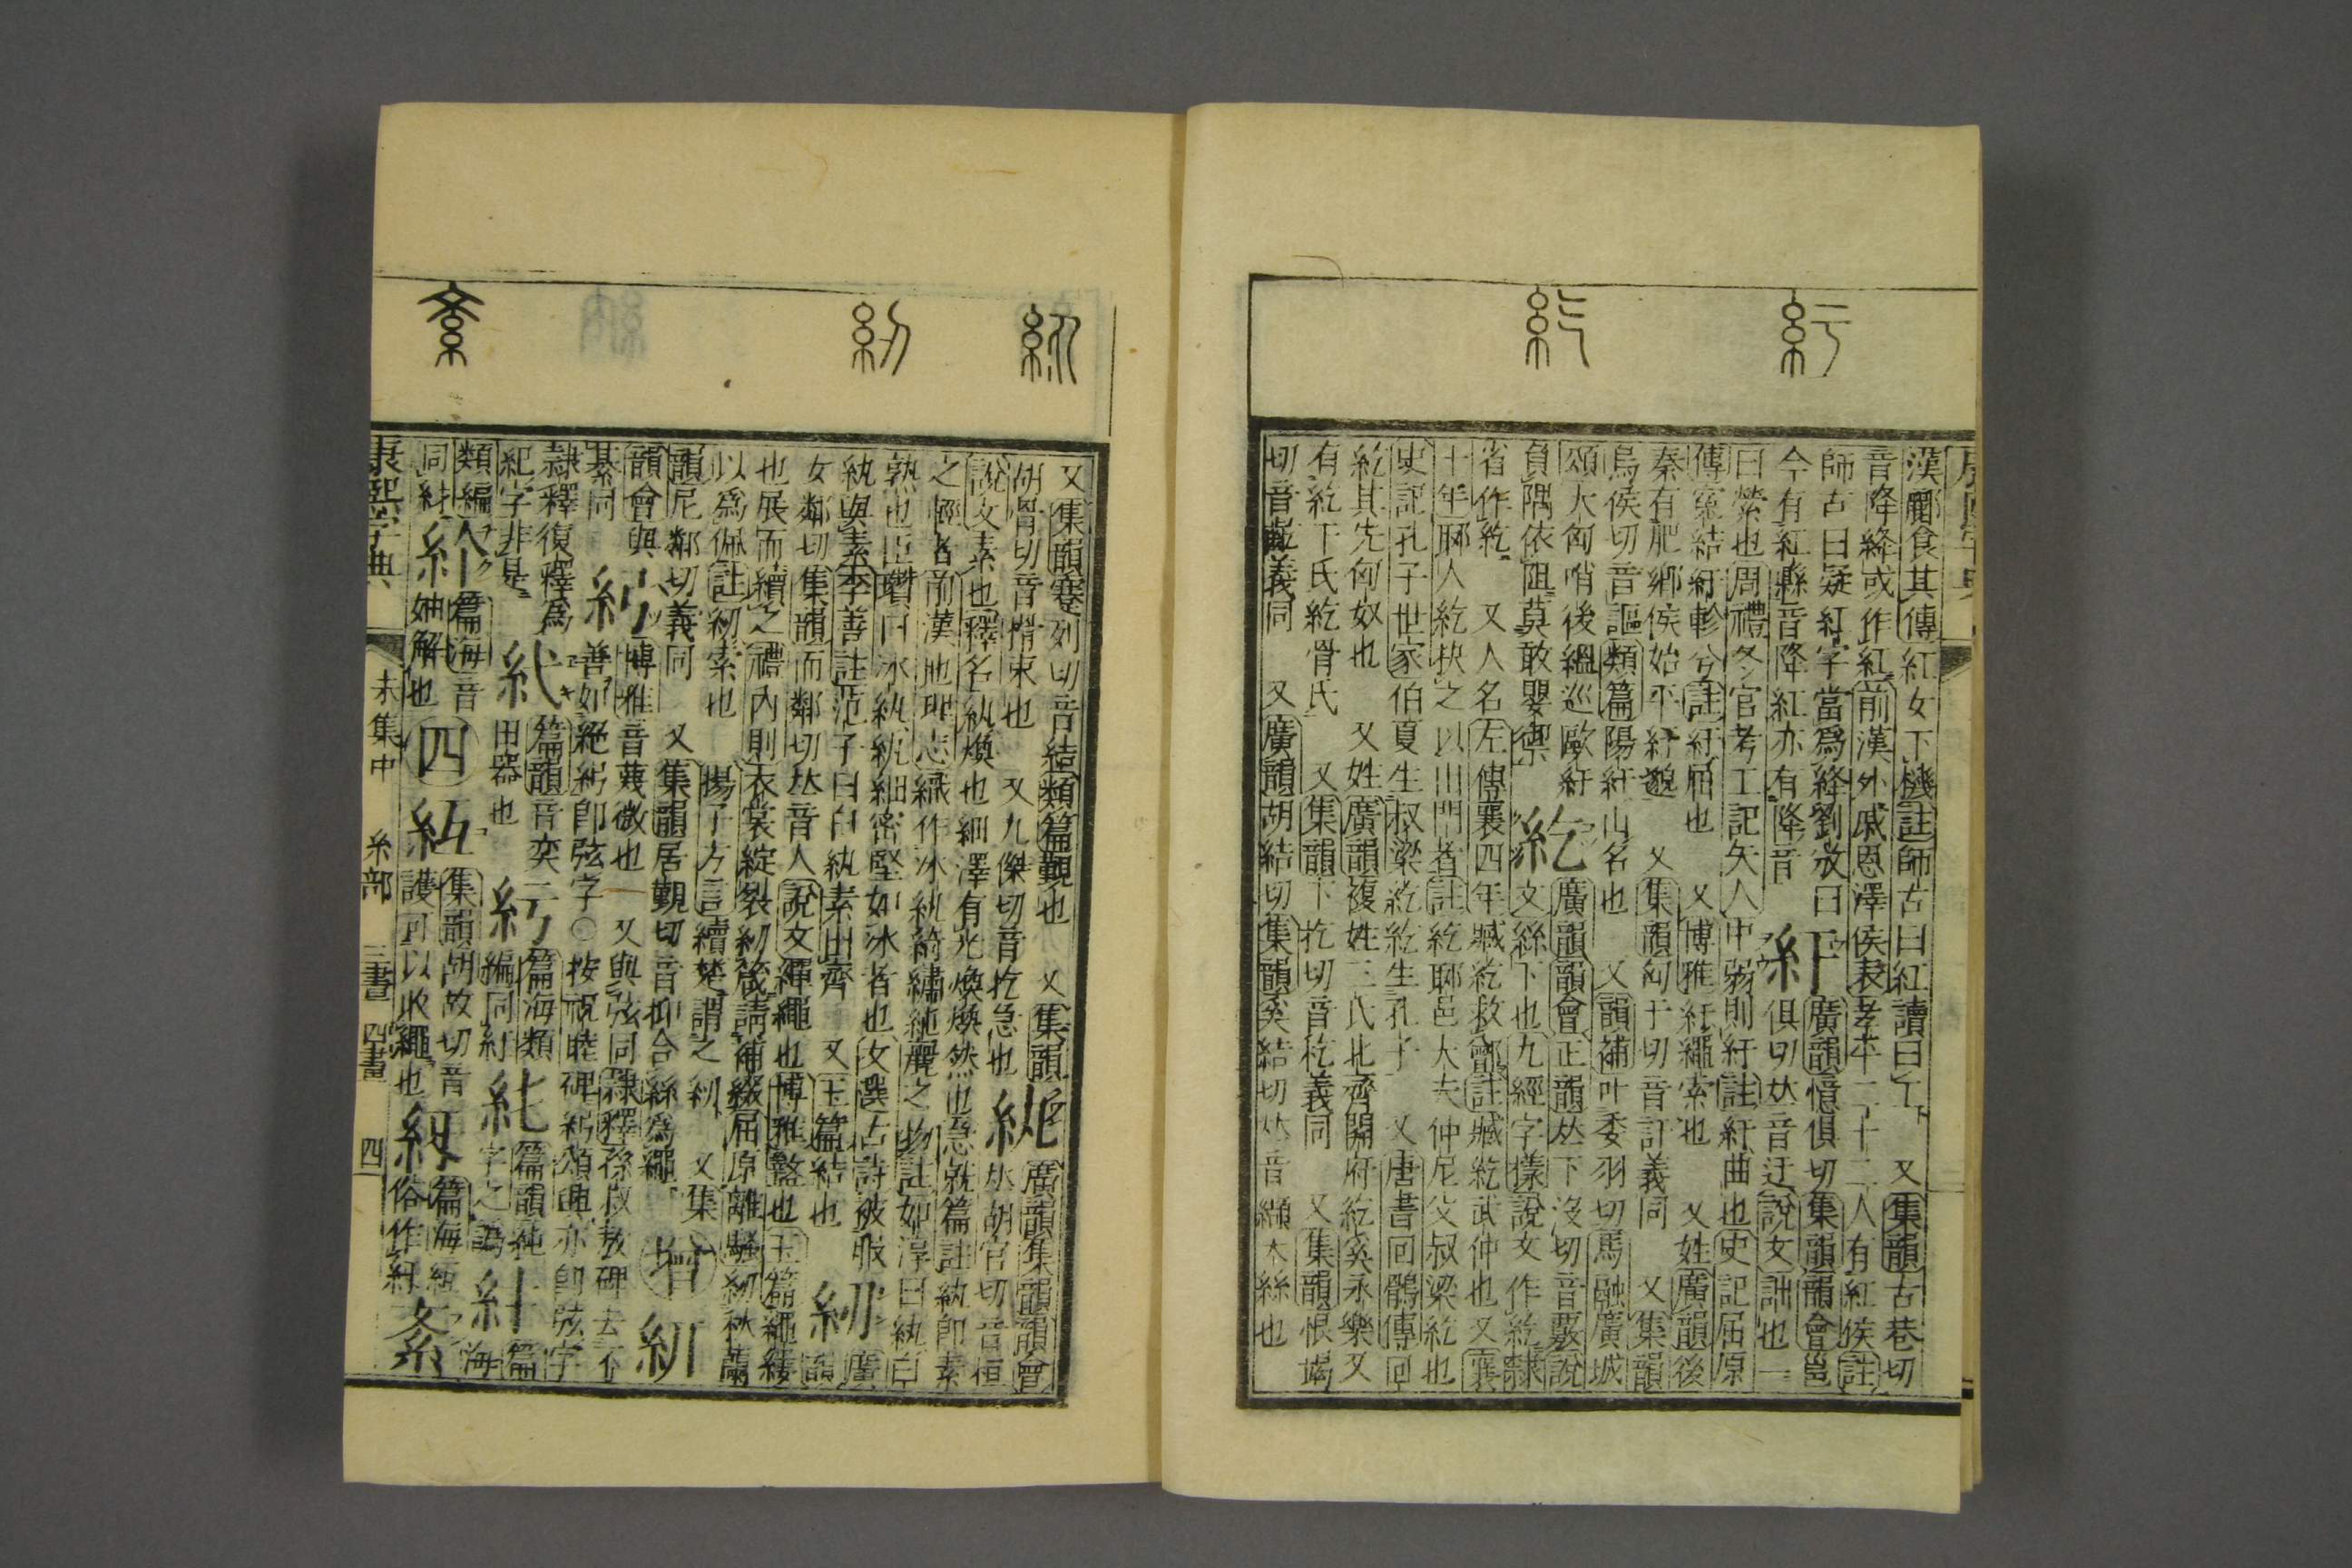 紆
紇
漢酈食其傳紅女下機註師古曰紅讀曰工 又集韻古巷切
音降絳或作紅前漢外戚恩澤侯表孝平二十二人有紅侯註
師古曰疑紅字當爲絳劉攽曰 紆 廣韻憶俱切集韻韻會邕
今有紅縣音降紅亦有降音 俱切𠀤音迂說文詘也一
曰縈也周禮冬官考工記矢人中弱則紆註紆曲也史記屈原
傳寃結紆軫兮註紆屈也 又博雅紆繩索也 又姓廣韻後
秦有肥鄉侯始平紆邈 又集韻匈于切音訏義同 又集韻
烏侯切音謳類篇陽紆山名也 又韻補叶委羽切馬融廣城
頌大匈哨後縕巡歐紆
負隅依阻莫敢嬰禦 紇 廣韻韻會正韻𠀤下沒切音覈說
文絲下也九經字樣說文作紇隸
省作紇 又人名左傳襄四年臧紇救鄫註臧紇武仲也又襄
十年郰人紇抉之以出門者註紇郰邑大夫仲尼父叔梁紇也
史記孔子世家伯夏生叔梁紇紇生孔子 又唐書回鶻傳回
紇其先匈奴也 又姓廣韻複姓三氏北齊開府紇奚永樂又
有紇下氏紇骨氏 又集韻下扢切音杚義同 又集韻恨竭
切音齕義同 又廣韻胡結切集韻奚結切𠀤音纈木絲也
紈
紉
紊
又集韻蹇列切音結類篇艱也 又集韻
胡骨切音搰束也 又九傑切音扢急也 紈 廣韻集韻韻會
𠀤胡官切音桓
說文素也釋名紈煥也細澤有光煥煥然也急就篇註紈卽素
之輕者前漢地理志織作冰紈綺繡純麗之物註如淳曰紈白
熟也臣瓚曰冰紈紈細密堅如冰者也文選古詩被服
紈與素李善註范子曰白紈素出齊 又玉篇結也 紉 廣韻
女鄰切集韻而鄰切𠀤音人說文繟繩也博雅盭也玉篇繩縷
也展而續之禮內則衣裳綻裂紉箴請補綴屈原離騷紉秋蘭
以爲佩註紉索也 揚子方言續楚謂之紉 又集
韻尼鄰切義同 又集韻居覲切音抑合絲爲繩 增 紖
韻會與
綦同 紟 博雅音蔑微也 又與弦同隸釋孫叔敖碑去不
善如絕紟卽弦字○按祝睦碑紟頌典亦卽弦字
隸釋復釋爲
紀字非是 紎 篇韻音奕一
田器也 䊸 篇海類
編同紆 紪 篇韻純
字之譌 紏 篇海
類編
同紂 紒 篇海音
妯解也 四 䋀 集韻胡故切音
護可以收繩也 䋎 篇海紐
俗作紉 紊
康熙字典 未集中 糸部 三畫 四畫 四